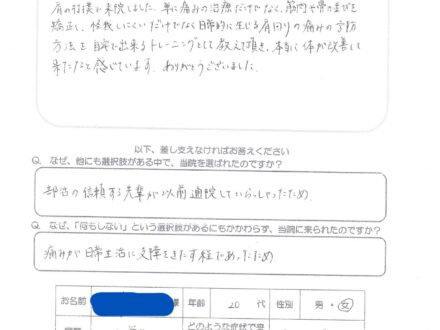 肩の打撲で来院しました。単に痛みの治療だけでなく、筋肉や骨の歪みを
矯正し、怪我しにくいだけでなく日常的に生じる肩回りの痛みの予防
方法を自宅で出来るトレーニングとして教えて頂き、本当に体が改善して
来たなと感じています。ありがとうございました。
以下、差し支えなければお答えください
Q. なぜ、他にも選択肢がある中で、当院を選ばれたのですか?
部活の信頼する先輩が以前通院していらっしゃったため
Q. なぜ、「何もしない」という選択肢があるにもかかわらず、当院に来られたのですか?
痛みが日常生活に支障をきたす程であったため
お名前 様 年齢 20 代 性別 男・女
どのような症状で来